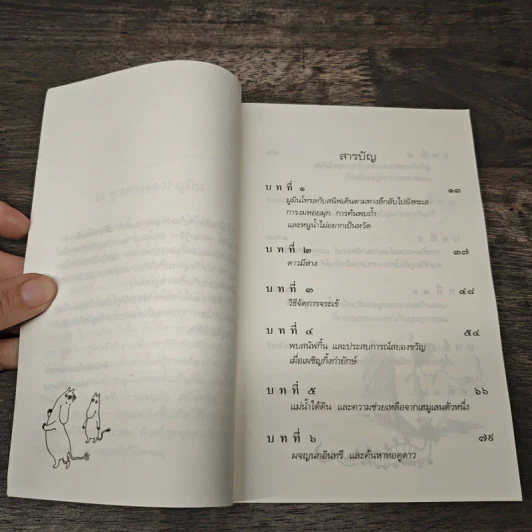 สารบัญ
บทที่ ๑ ๑๓
มูมินโทรลกับสนิฟเดินตามทางลึกลับไปยังทะเล
การงมหอยมุก การค้นพบถ้ำ
และหนูน้ำไม่อยากเป็นหวัด
บทที่ ๒ ๓๗
ดาวมีหาง
บทที่ ๓ ๔๘
วิธีจัดการจระเข้
บทที่ ๔ ๕๔
พบสนัฟกิ้น และประสบการณ์สยองขวัญ
เมื่อเผชิญกิ้งก่ายักษ์
บทที่ ๕ ๖๖
แม่น้ำใต้ดิน และความช่วยเหลือจากเฮมูเลนตัวหนึ่ง
บทที่ ๖ ๗๙
ผจญนกอินทรี และค้นหาหอดูดาว